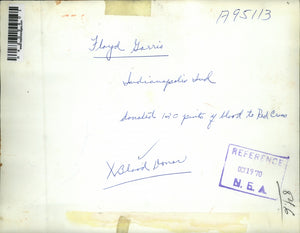 A95113
Floyd Garris
Indianapolis Ind
donated 120 pints of blood to Red Cross
X Blood Donor
REFERENCE
N. E. A.